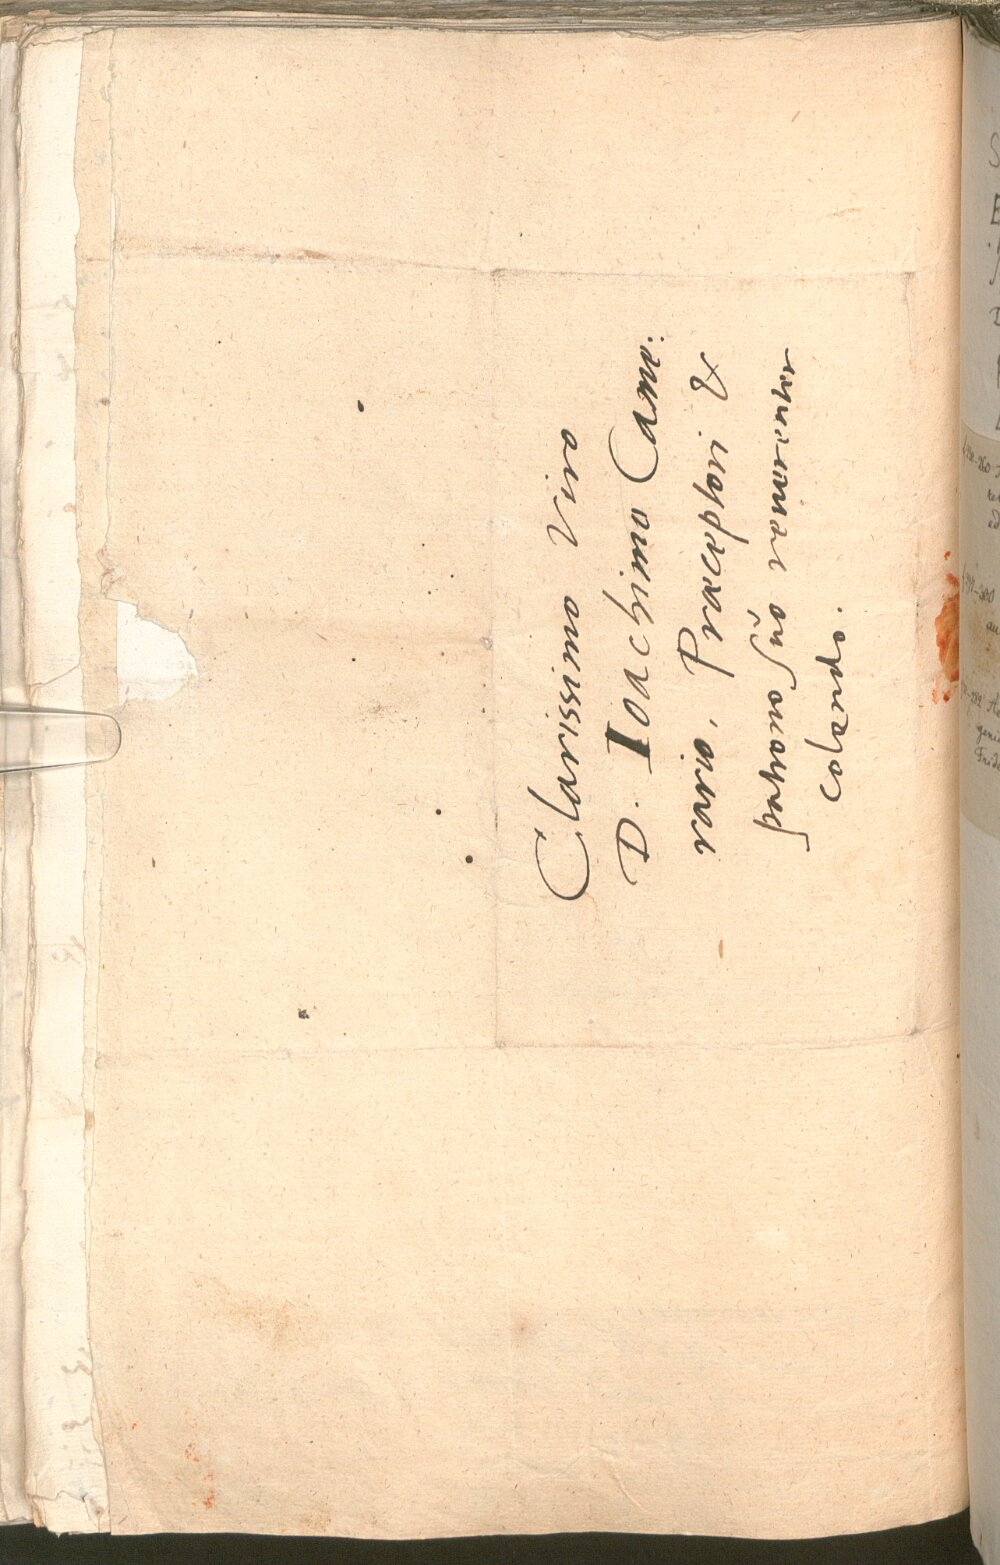 Clarissimo Viro
D. Ioachimo Came:
rario, Praeceptori &
patrono suo reverenter
colendo.